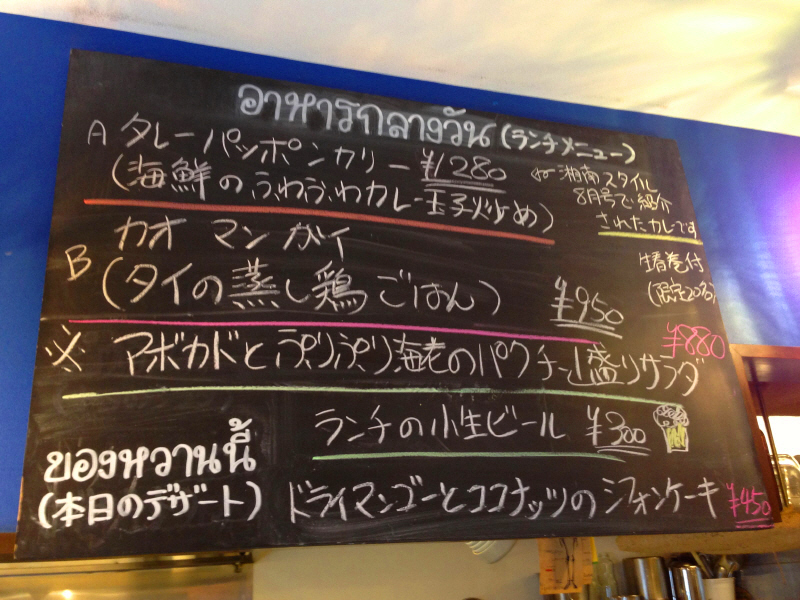 อาหารกลางวัน (ランチメニュー)
A タレーパッポンカリー ¥1280
(海鮮のふわふわカレー玉子炒め)
湘南スタイル
8月号で紹介
されたカレーです
カオ マン ガイ
B (タイの蒸し鶏ごはん) ¥950
生春巻付
(限定20名)
※ アボカドとぷりぷり海老のパクチー盛りサラダ ¥880
ランチの小生ビール ¥300
ของหวานนี้
(本日のデザート) ドライマンゴーとココナッツのシフォンケーキ ¥450